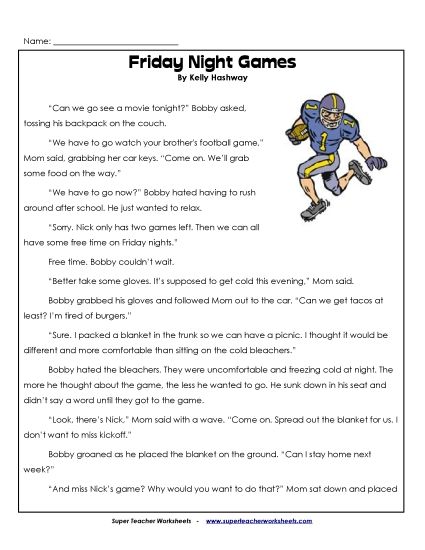 Name: ____________________________
Friday Night Games
By Kelly Hashway
“Can we go see a movie tonight?” Bobby asked,
tossing his backpack on the couch.
“We have to go watch your brother's football game,”
Mom said, grabbing her car keys. “Come on. We’ll grab
some food on the way.”
“We have to go now?” Bobby hated having to rush
around after school. He just wanted to relax.
“Sorry. Nick only has two games left. Then we can all
have some free time on Friday nights.”
Free time. Bobby couldn’t wait.
“Better take some gloves. It’s supposed to get cold this evening,” Mom said.
Bobby grabbed his gloves and followed Mom out to the car. “Can we get tacos at
least? I’m tired of burgers.”
“Sure. I packed a blanket in the trunk so we can have a picnic. I thought it would be
different and more comfortable than sitting on the cold bleachers.”
Bobby hated the bleachers. They were uncomfortable and freezing cold at night. The
more he thought about the game, the less he wanted to go. He sunk down in his seat and
didn’t say a word until they got to the game.
“Look, there’s Nick,” Mom said with a wave. “Come on. Spread out the blanket for us. I
don’t want to miss kickoff.”
Bobby groaned as he placed the blanket on the ground. “Can I stay home next
week?”
“And miss Nick’s game? Why would you want to do that?” Mom sat down and placed
Super Teacher Worksheets - www.superteacherworksheets.com
1